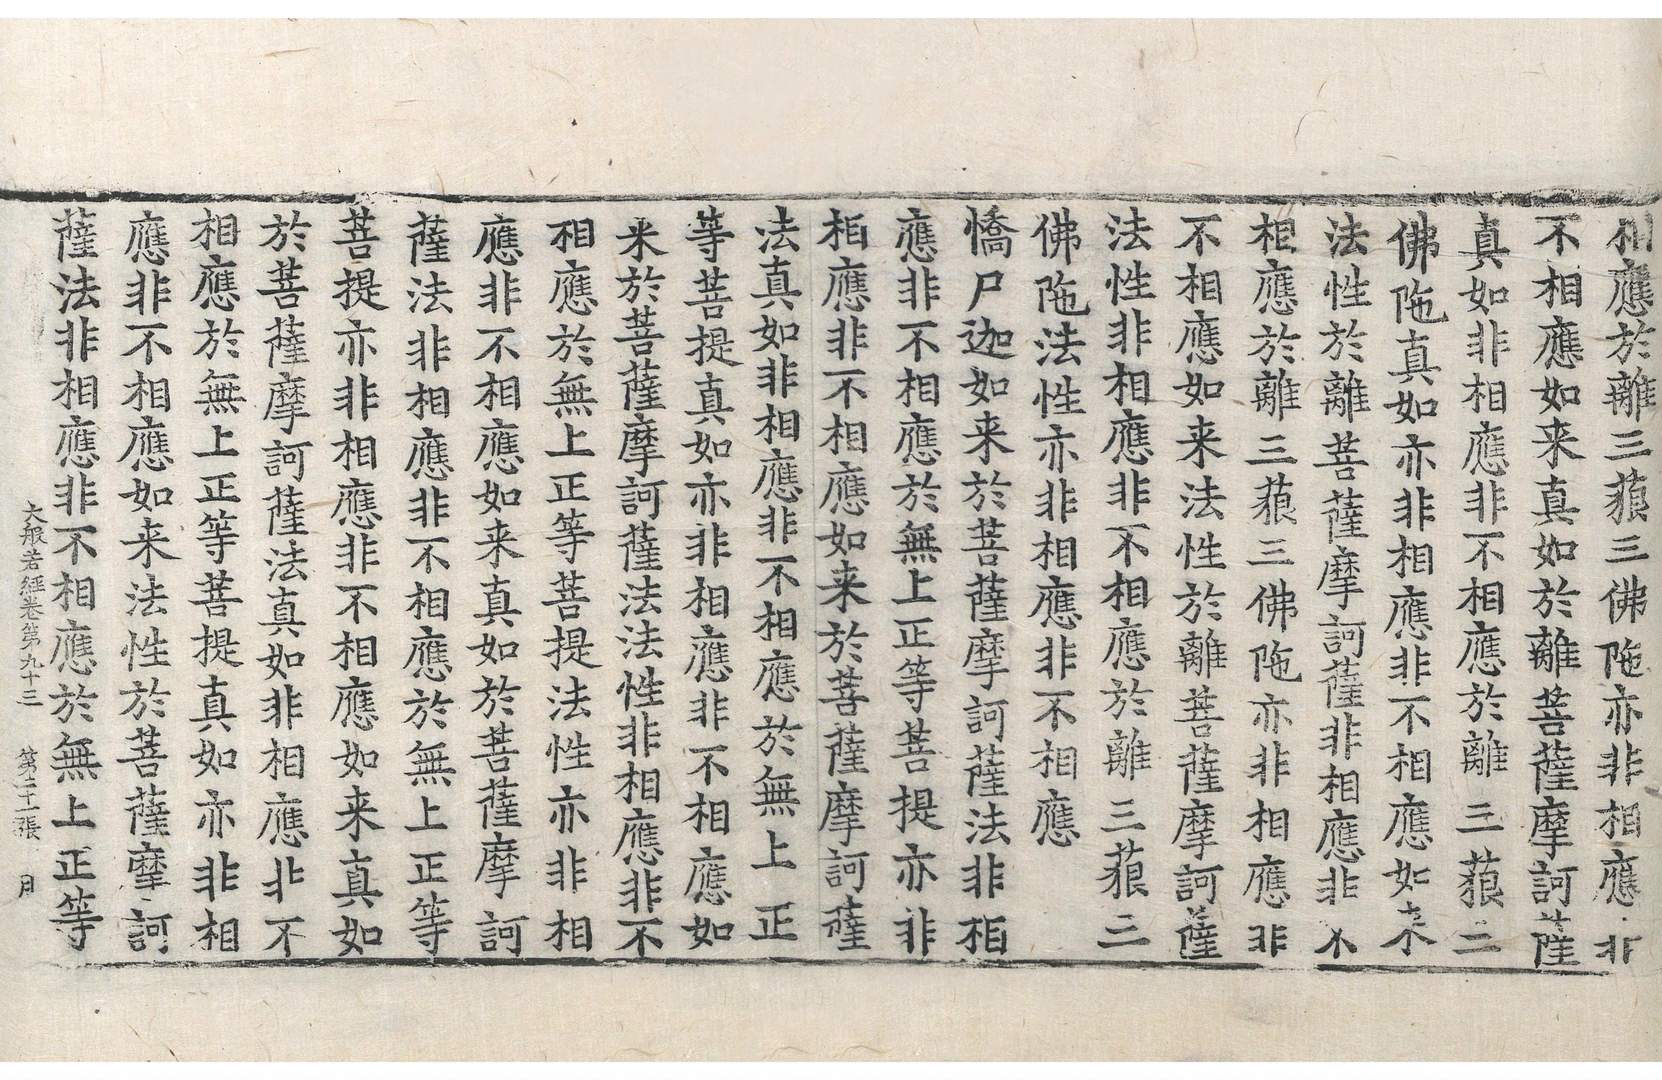 相應於離三藐三佛陁亦非相應非
不相應如来真如於離菩薩摩訶薩
真如非相應非不相應於離三藐三
佛陁真如亦非相應非不相應如来
法性於離菩薩摩訶薩非相應非不
相應於離三藐三佛陁亦非相應非
不相應如来法性於離菩薩摩訶薩
法性非相應非不相應於離三藐三
佛陁法性亦非相應非不相應
憍尸迦如来於菩薩摩訶薩法非相
應非不相應於無上正等菩提亦非
相應非不相應如来於菩薩摩訶薩
法真如非相應非不相應於無上正
等菩提真如亦非相應非不相應如
来於菩薩摩訶薩法法性非相應非不
相應於無上正等菩提法性亦非相
應非不相應如来真如於菩薩摩訶
薩法非相應非不相應於無上正等
菩提亦非相應非不相應如来真如
於菩薩摩訶薩法真如非相應非不
相應於無上正等菩提真如亦非相
應非不相應如来法性於菩薩摩訶
薩法非相應非不相應於無上正等
大般若經卷第九十三 第二十一張 月